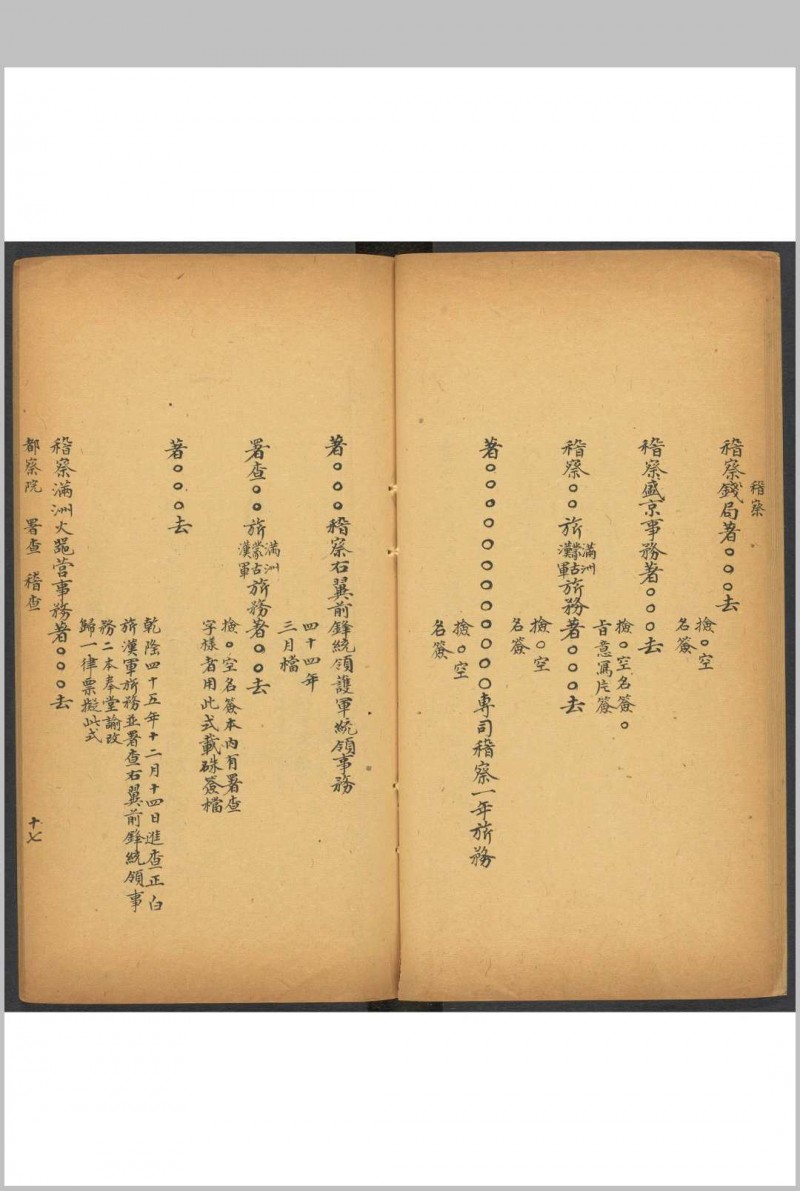 稽察
稽察錢局著○○○去
撿○空
名簽
稽察盛京事務著○○○去
撿○空名簽○
旨意寫片簽
稽察○○旂滿洲蒙古漢軍旂務著○○○去
撿○空
名簽
著○○○○○○○○○專司稽察一年旂務
撿○空
名簽
著○○○稽察右翼前鋒統領護軍統領事務
四十四年
三月檔
署查○○旂滿洲蒙古漢軍旂務著○○去
撿○空名簽本內有署查
字樣者用此式載硃簽檔
著○○○去
乾隆四十五年十二月十四日進查正白
旂漢軍旂務並署查右翼前鋒統領事
務二本奉堂諭改
歸一律票擬此式
稽察滿洲火器營事務著○○○去
都察院 署查 稽查 十七